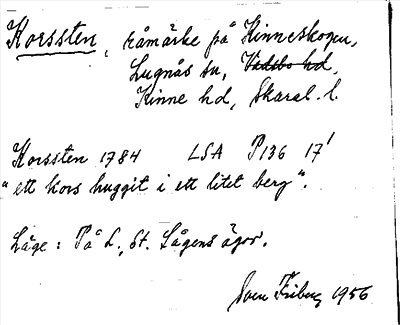 Korssten, råmärke på Kinneskogen,
Lugnås sn, Vadsbo hd,
Kinne hd, Skarab. l.
Korssten 1784 LSA P136 17'
"ett kors huggit i ett litet berg".
Läge: På L., St. Lågens ägor.
Sven Friberg 1956